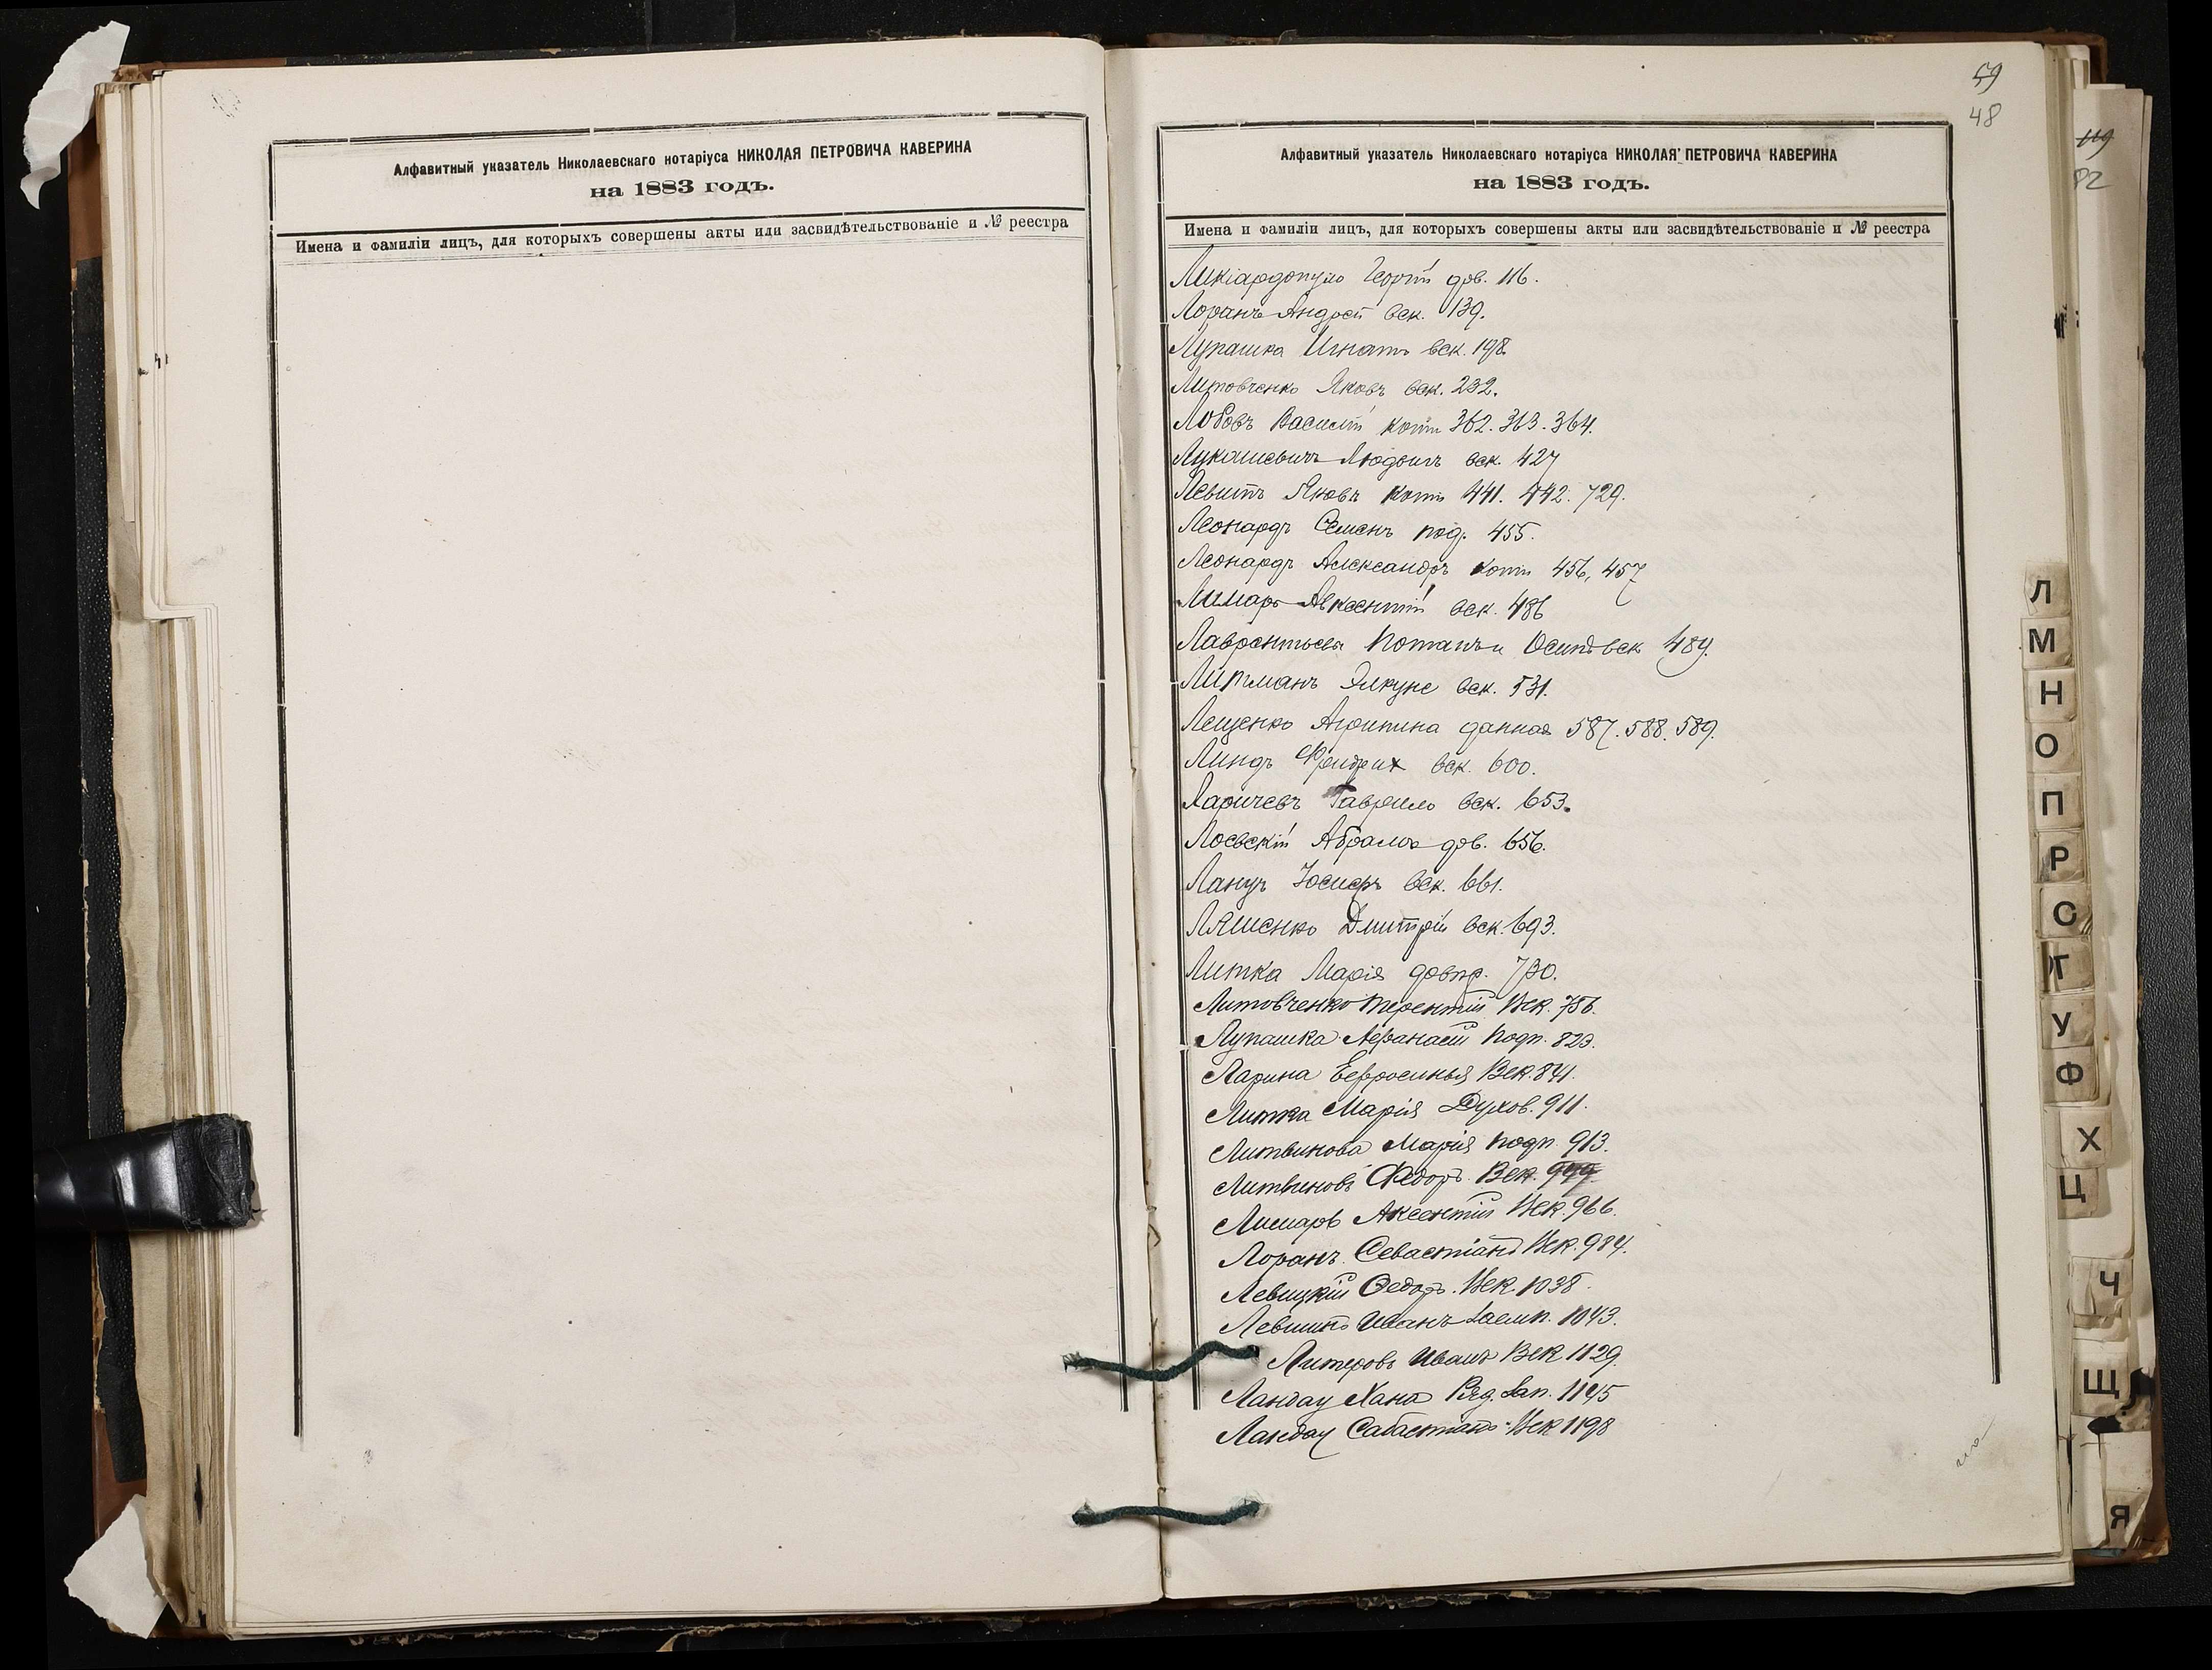 Алфавитный указатель Николаевскаго нотаріуса НИКОЛАЯ ПЕТРОВИЧА КАВЕРИНА
на 1883 годъ.
Имена и фамиліи лицъ, для которыхъ совершены акты или засвидѣтельствованіе и № реестра
59
48
Алфавитный указатель Николаевскаго нотаріуса НИКОЛАЯ ПЕТРОВИЧА КАВЕРИНА
на 1883 годъ.
Имена и фамиліи лицъ, для которыхъ совершены акты или засвидѣтельствованіе и № реестра
Ликіардопуло Георгій дов. 116.
Лоранъ Андрей век. 139.
Лупашка Игнатъ век. 198
Литовченко Яковъ век. 232.
Лобовъ Василій копія 362. 363. 364.
Лукашевичъ Людвигъ век. 427
Левитъ Яковъ копія 441. 442. 729.
Леонардъ Семенъ под. 455.
Леонардъ Александръ копія 456, 457
Лимарь Авксентій век. 486
Лаврентьевы Потапъ и Осипъ век 489.
Литманъ век. 531.
Лещенко Агрипина данная 587. 588. 589.
Линдъ Фридрих век. 600.
Ларичевъ Гаврило век. 653.
Лоевскій Абрамъ дов. 656.
Ланцъ Іосифъ век. 661.
Ляшенко Дмитрій век. 693.
Литка Марія 730.
Литовченко Терентій Век. 756.
Лупашка Афанасій подп. 823.
Ларина Евфросинья Век. 841.
Литка Марія Духов. 911.
Литвинова Марія подп. 913.
Литвиновъ Федоръ. Век.
Лимарь Аксентій Век. 966.
Лоранъ. Севастіанъ Век. 984.
Левицкій Федоръ. Век 1038.
Иванъ 1043.
Иванъ Век 1129.
Ландау Хана 1145
Ландау Век 1198
119
82
Л
М
Н
О
П
Р
С
Т
У
Ф
Х
Ц
Ч
Щ
Я